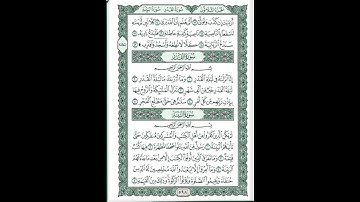 الجزء الثلاثون سورة القدر سورة البينة
أَرَءَيْتَ إِن كَذَّبَ وَتَوَلَّىٰٓ ١٣ أَلَمْ يَعْلَم بِأَنَّ ٱللَّهَ يَرَىٰ ١٤ كَلَّا لَئِن لَّمْ يَنتَهِ
لَنَسْفَعًۢا بِٱلنَّاصِيَةِ ١٥ نَاصِيَةٍ كَٰذِبَةٍ خَاطِئَةٍ ١٦ فَلْيَدْعُ نَادِيَهُۥ ١٧
سَنَدْعُ ٱلزَّبَانِيَةَ ١٨ كَلَّا لَا تُطِعْهُ وَٱسْجُدْ وَٱقْتَرِب ۩ ١٩
سورة القدر
بِسْمِ ٱللَّهِ ٱلرَّحْمَٰنِ ٱلرَّحِيمِ
إِنَّآ أَنزَلْنَٰهُ فِى لَيْلَةِ ٱلْقَدْرِ ١ وَمَآ أَدْرَىٰكَ مَا لَيْلَةُ ٱلْقَدْرِ ٢
لَيْلَةُ ٱلْقَدْرِ خَيْرٌ مِّنْ أَلْفِ شَهْرٍ ٣ تَنَزَّلُ ٱلْمَلَٰٓئِكَةُ وَٱلرُّوحُ فِيهَا
بِإِذْنِ رَبِّهِم مِّن كُلِّ أَمْرٍ ٤ سَلَٰمٌ هِىَ حَتَّىٰ مَطْلَعِ ٱلْفَجْرِ ٥
سورة البينة
بِسْمِ ٱللَّهِ ٱلرَّحْمَٰنِ ٱلرَّحِيمِ
لَمْ يَكُنِ ٱلَّذِينَ كَفَرُوا۟ مِنْ أَهْلِ ٱلْكِتَٰبِ وَٱلْمُشْرِكِينَ مُنفَكِّينَ حَتَّىٰ
تَأْتِيَهُمُ ٱلْبَيِّنَةُ ١ رَسُولٌ مِّنَ ٱللَّهِ يَتْلُوا۟ صُحُفًا مُّطَهَّرَةً ٢ فِيهَا
كُتُبٌ قَيِّمَةٌ ٣ وَمَا تَفَرَّقَ ٱلَّذِينَ أُوتُوا۟ ٱلْكِتَٰبَ إِلَّا مِنۢ بَعْدِ مَا جَآءَتْهُمُ
ٱلْبَيِّنَةُ ٤ وَمَآ أُمِرُوٓا۟ إِلَّا لِيَعْبُدُوا۟ ٱللَّهَ مُخْلِصِينَ لَهُ ٱلدِّينَ
حُنَفَآءَ وَيُقِيمُوا۟ ٱلصَّلَوٰةَ وَيُؤْتُوا۟ ٱلزَّكَوٰةَ وَذَٰلِكَ دِينُ ٱلْقَيِّمَةِ ٥
٥٩٨